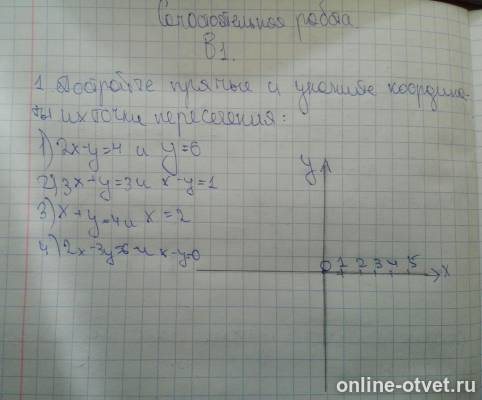 Самостоятельная работа
В1.
1 Постройте прямые и укажите координа-
ты их точки пересечения:
1) 2x-y=4 и y=6
2) 3x+y=3 и x-y=1
3) x+y=4 и x=2
4) 2x-3y=6 и x-y=0
y
0 1 2 3 4 5 x
online-otvet.ru